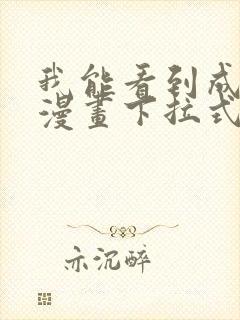 我能看到成
漫畫下拉式
亦沉醉